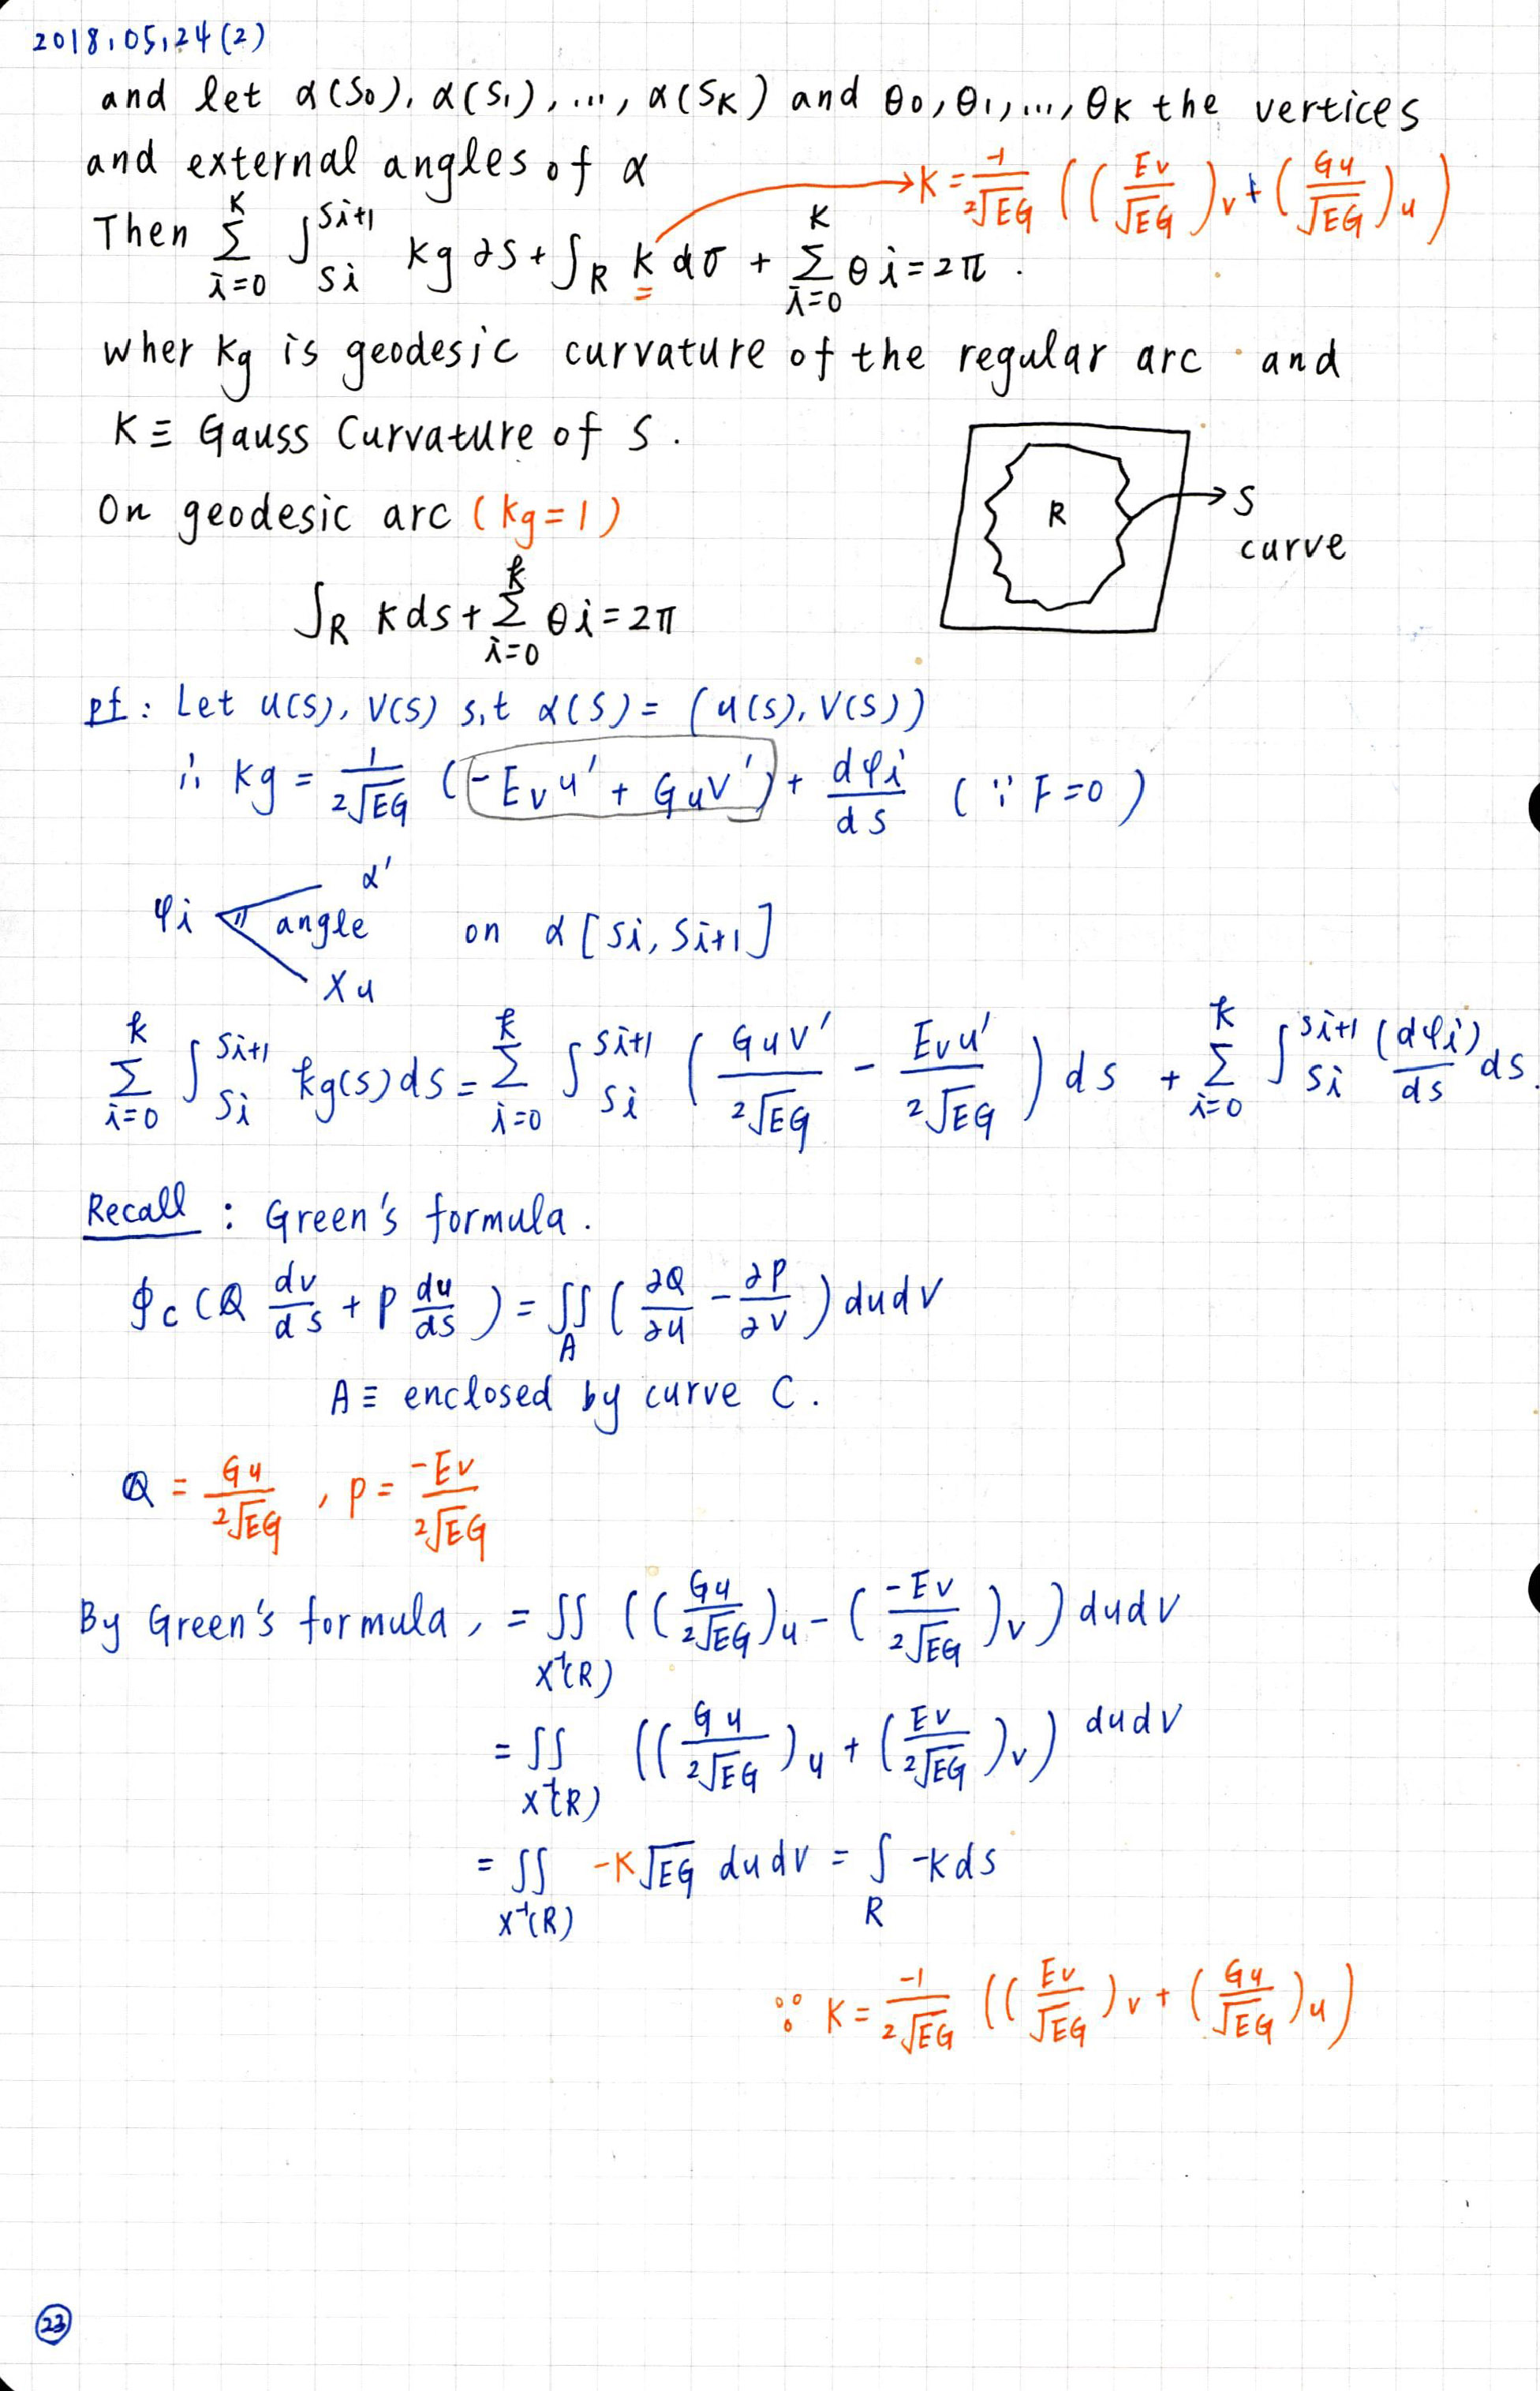 2018.05.24(2)
and let α(S0), α(S1), ..., α(SK) and θ0, θ1, ..., θK the vertices
and external angles of α
→ K = -1/(2√EG) ((Ev/√EG)v + (Gu/√EG)u)
Then Σ_{i=0}^{K} ∫_{Si}^{Si+1} Kg ∂S + ∫_R K dσ + Σ_{i=0}^{K} θi = 2π.
wher Kg is geodesic curvature of the regular arc and
K ≡ Gauss Curvature of S.
On geodesic arc (kg=1)
R
→ S
curve
∫_R K ds + Σ_{i=0}^{k} θi = 2π
pf: Let u(S), V(S) s,t α(S) = (u(S), V(S))
∴ Kg = 1/(2√EG) (-Ev u' + Gu V') + dφi/ds (∵ F=0)
α'
φi angle on α[Si, Si+1]
Xu
Σ_{i=0}^{k} ∫_{Si}^{Si+1} kg(s) ds = Σ_{i=0}^{k} ∫_{Si}^{Si+1} (Gu V'/(2√EG) - Ev u'/(2√EG)) ds + Σ_{i=0}^{k} ∫_{Si}^{Si+1} (dφi)/ds ds.
Recall: Green's formula.
∮c (Q dv/ds + P du/ds) = ∬_A (∂Q/∂u - ∂P/∂v) dudV
A ≡ enclosed by curve C.
Q = Gu/(2√EG), P = -Ev/(2√EG)
By Green's formula, = ∬_{X⁻¹(R)} ((Gu/(2√EG))u - (-Ev/(2√EG))v) dudV
= ∬_{X⁻¹(R)} ((Gu/(2√EG))u + (Ev/(2√EG))v) dudV
= ∬_{X⁻¹(R)} -K√EG dudV = ∫_R -K ds
∵ K = -1/(2√EG) ((Ev/√EG)v + (Gu/√EG)u)
23